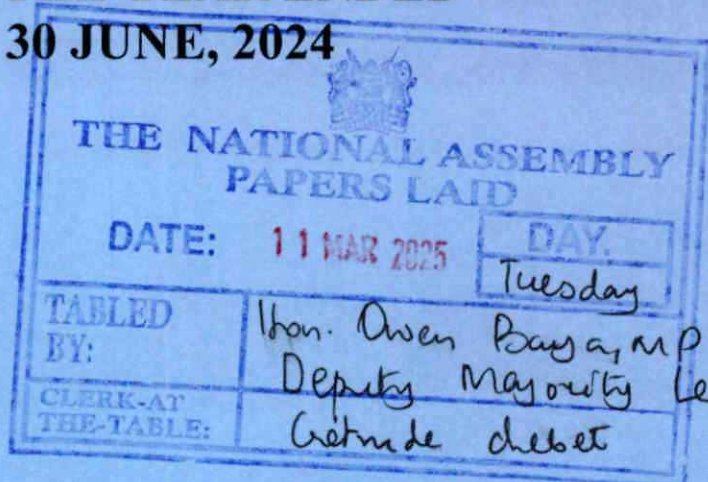 30 JUNE, 2024
THE NATIONAL ASSEMBLY
PAPERS LAID
DATE: 11 MAR 2025
DAY.
Tuesday
TABLED BY:
Hon. Owen Baya, MP
Deputy Majority Le
CLERK-AT THE-TABLE:
Getrude chebet